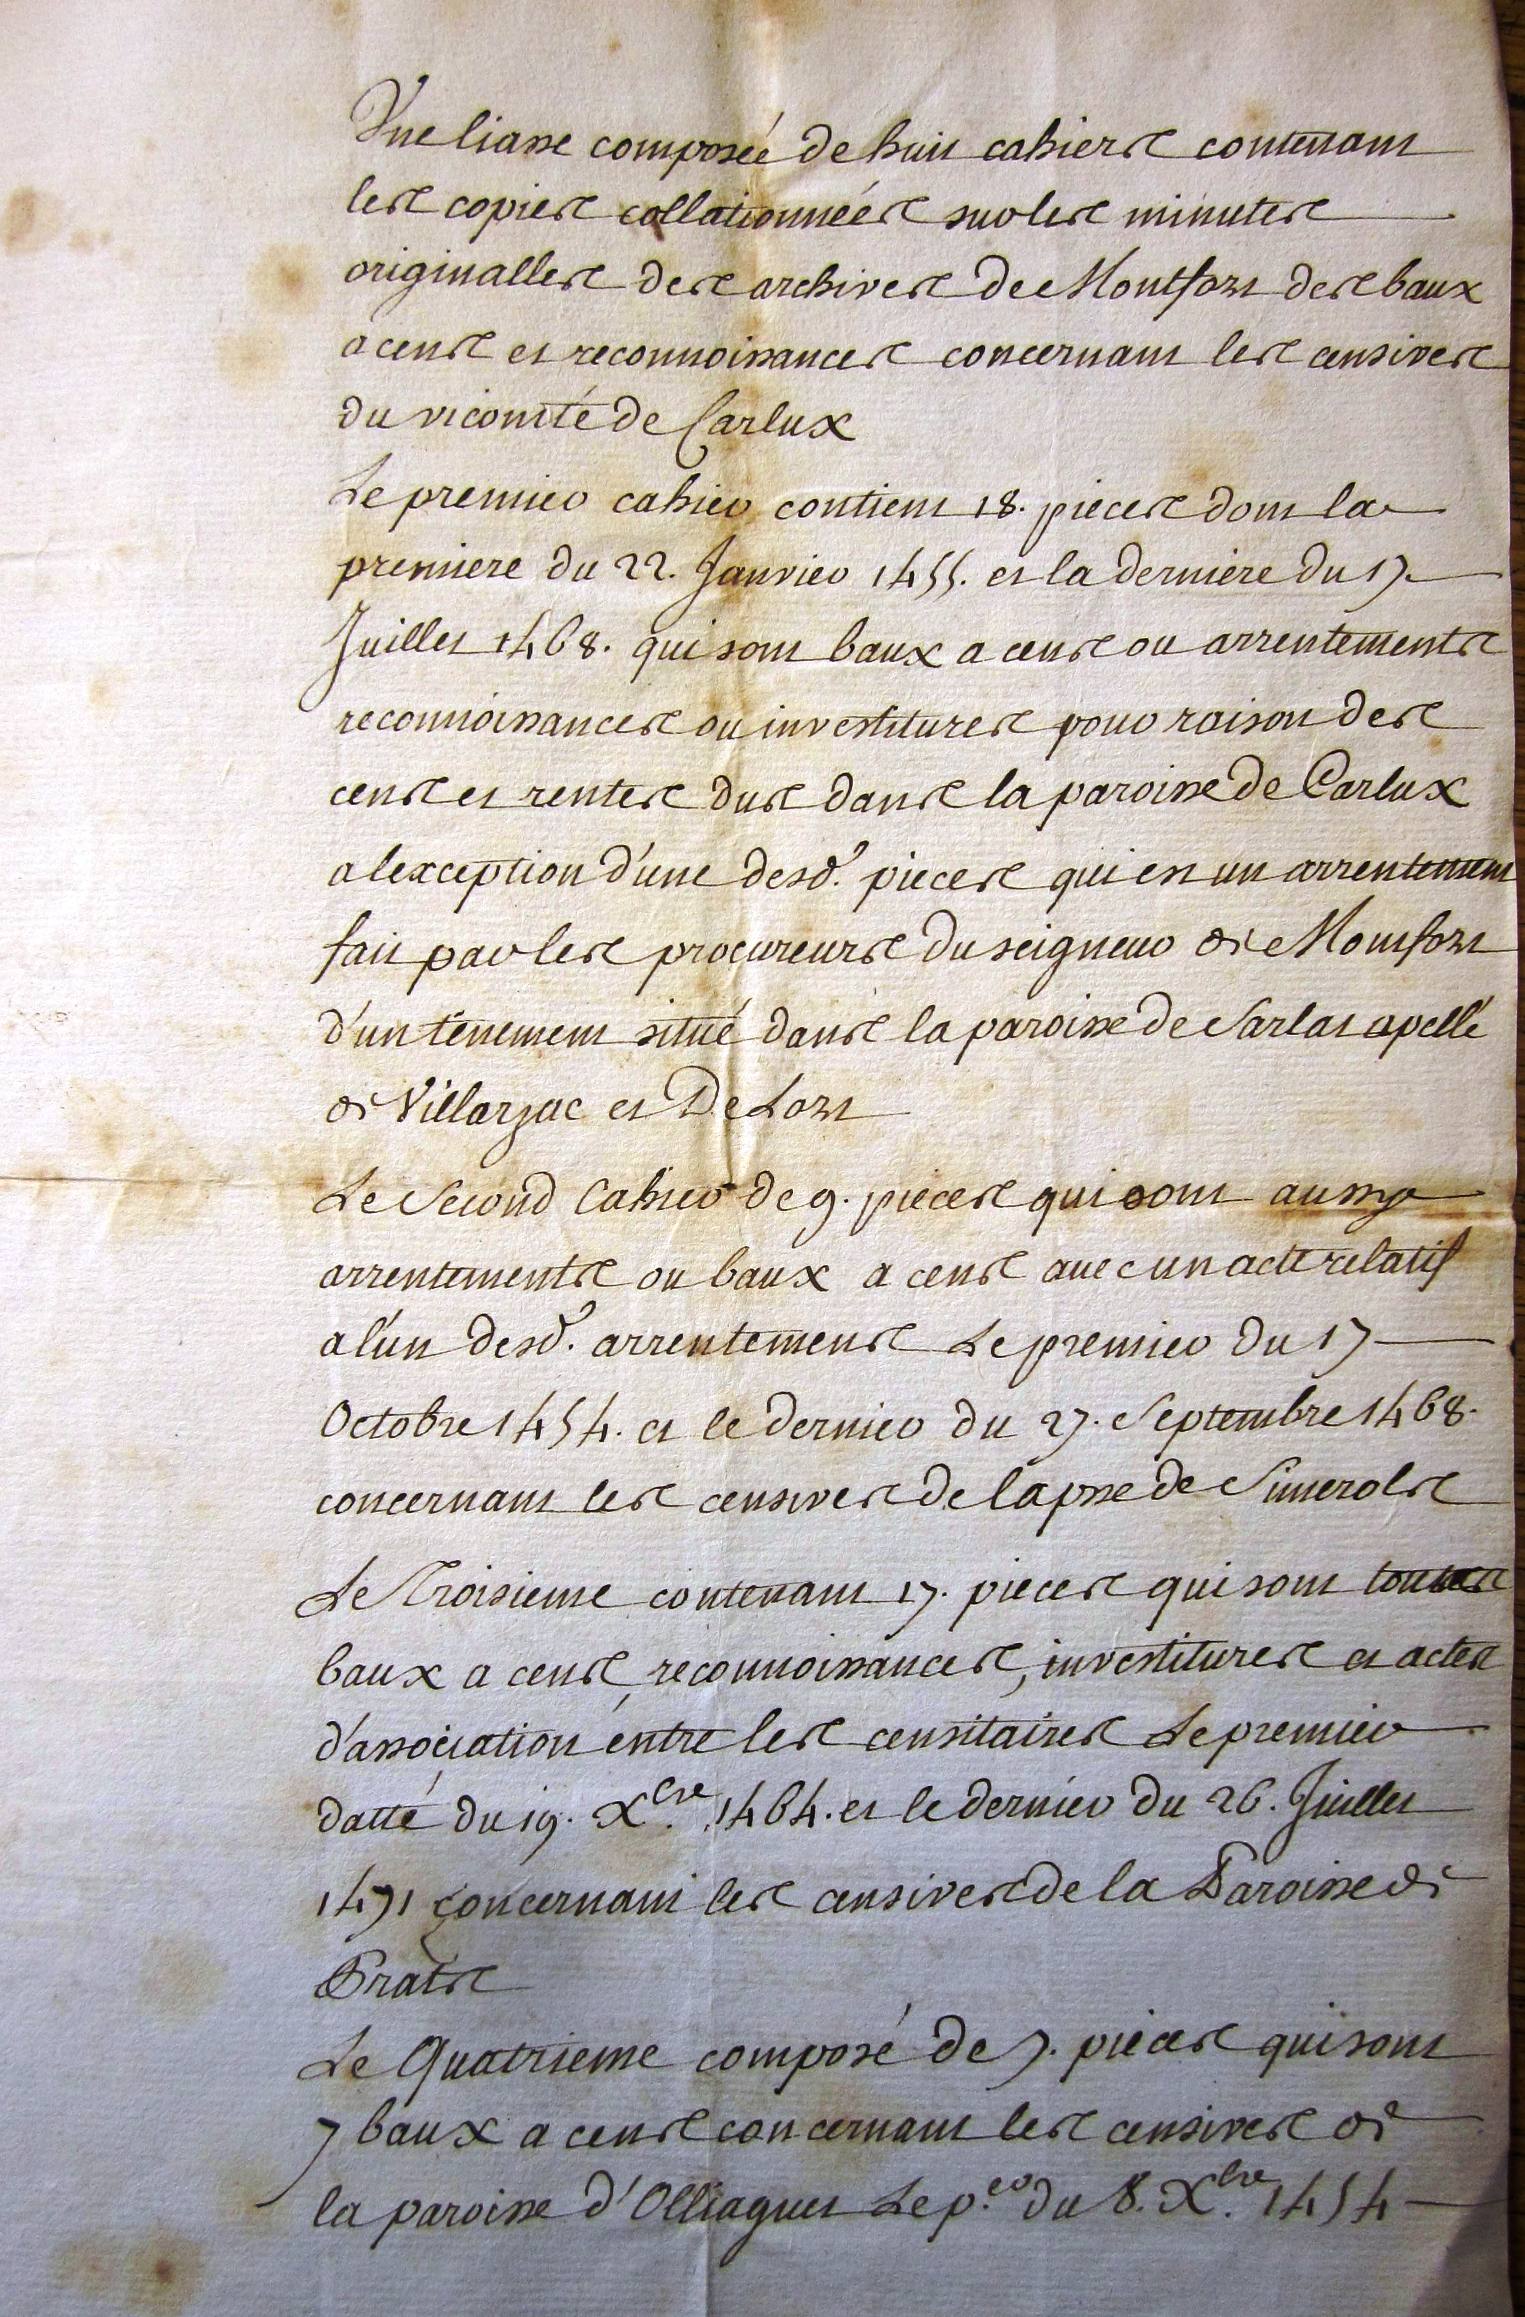 Une liasse composée de huit cahiers contenant
les copies collationnéés sur les minutes
originalles des archives de Montfort des baux
a cens et reconnoissances concernant les censives
du vicomté de Carlux
Le premier cahier contient 18. pieces dont la
premiere du 22. Janvier 1455. et la derniere du 17
Juillet 1468. qui sont baux a cens ou arrentements
reconnoissances ou investitures pour raison des
cens et rentes dus dans la paroisse de Carlux
a lexception d'une desd. pieces qui est un arrentement
fait par les procureurs du seigneur de Monfort
d'un tenement situé dans la paroisse de Sarlat apellé
de Villarzac et De Lort
Le Second Cahier de 9. pieces qui sont aussy
arrentements ou baux a cens avec un acte relatif
a l'un desd. arrentemens Le premier du 17
Octobre 1454. et le dernier du 27. Septembre 1468.
concernant les censives de la psse de Simerols
Le Troisieme contenant 17. pieces qui sont toutes
baux a cens, reconnoissances, investitures et actes
d'association entre les censitaires Le premier
datté du 19. Xbre. 1464. et le dernier du 26. Juillet
1471 concernant les censives de la Paroisse de
Prats
Le Quatrieme composé de 7. pieces qui sont
7 baux a cens concernant les censives de
la paroisse d'Olliagues Le p.er du 8. Xbre. 1454